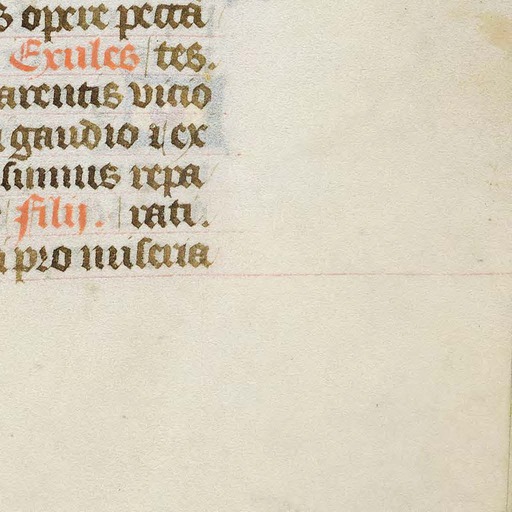 s opere pecca
Exules tes.
arentis vicio
gaudio ⁊ ex
sumus repa
filij. rati.
pro miseria